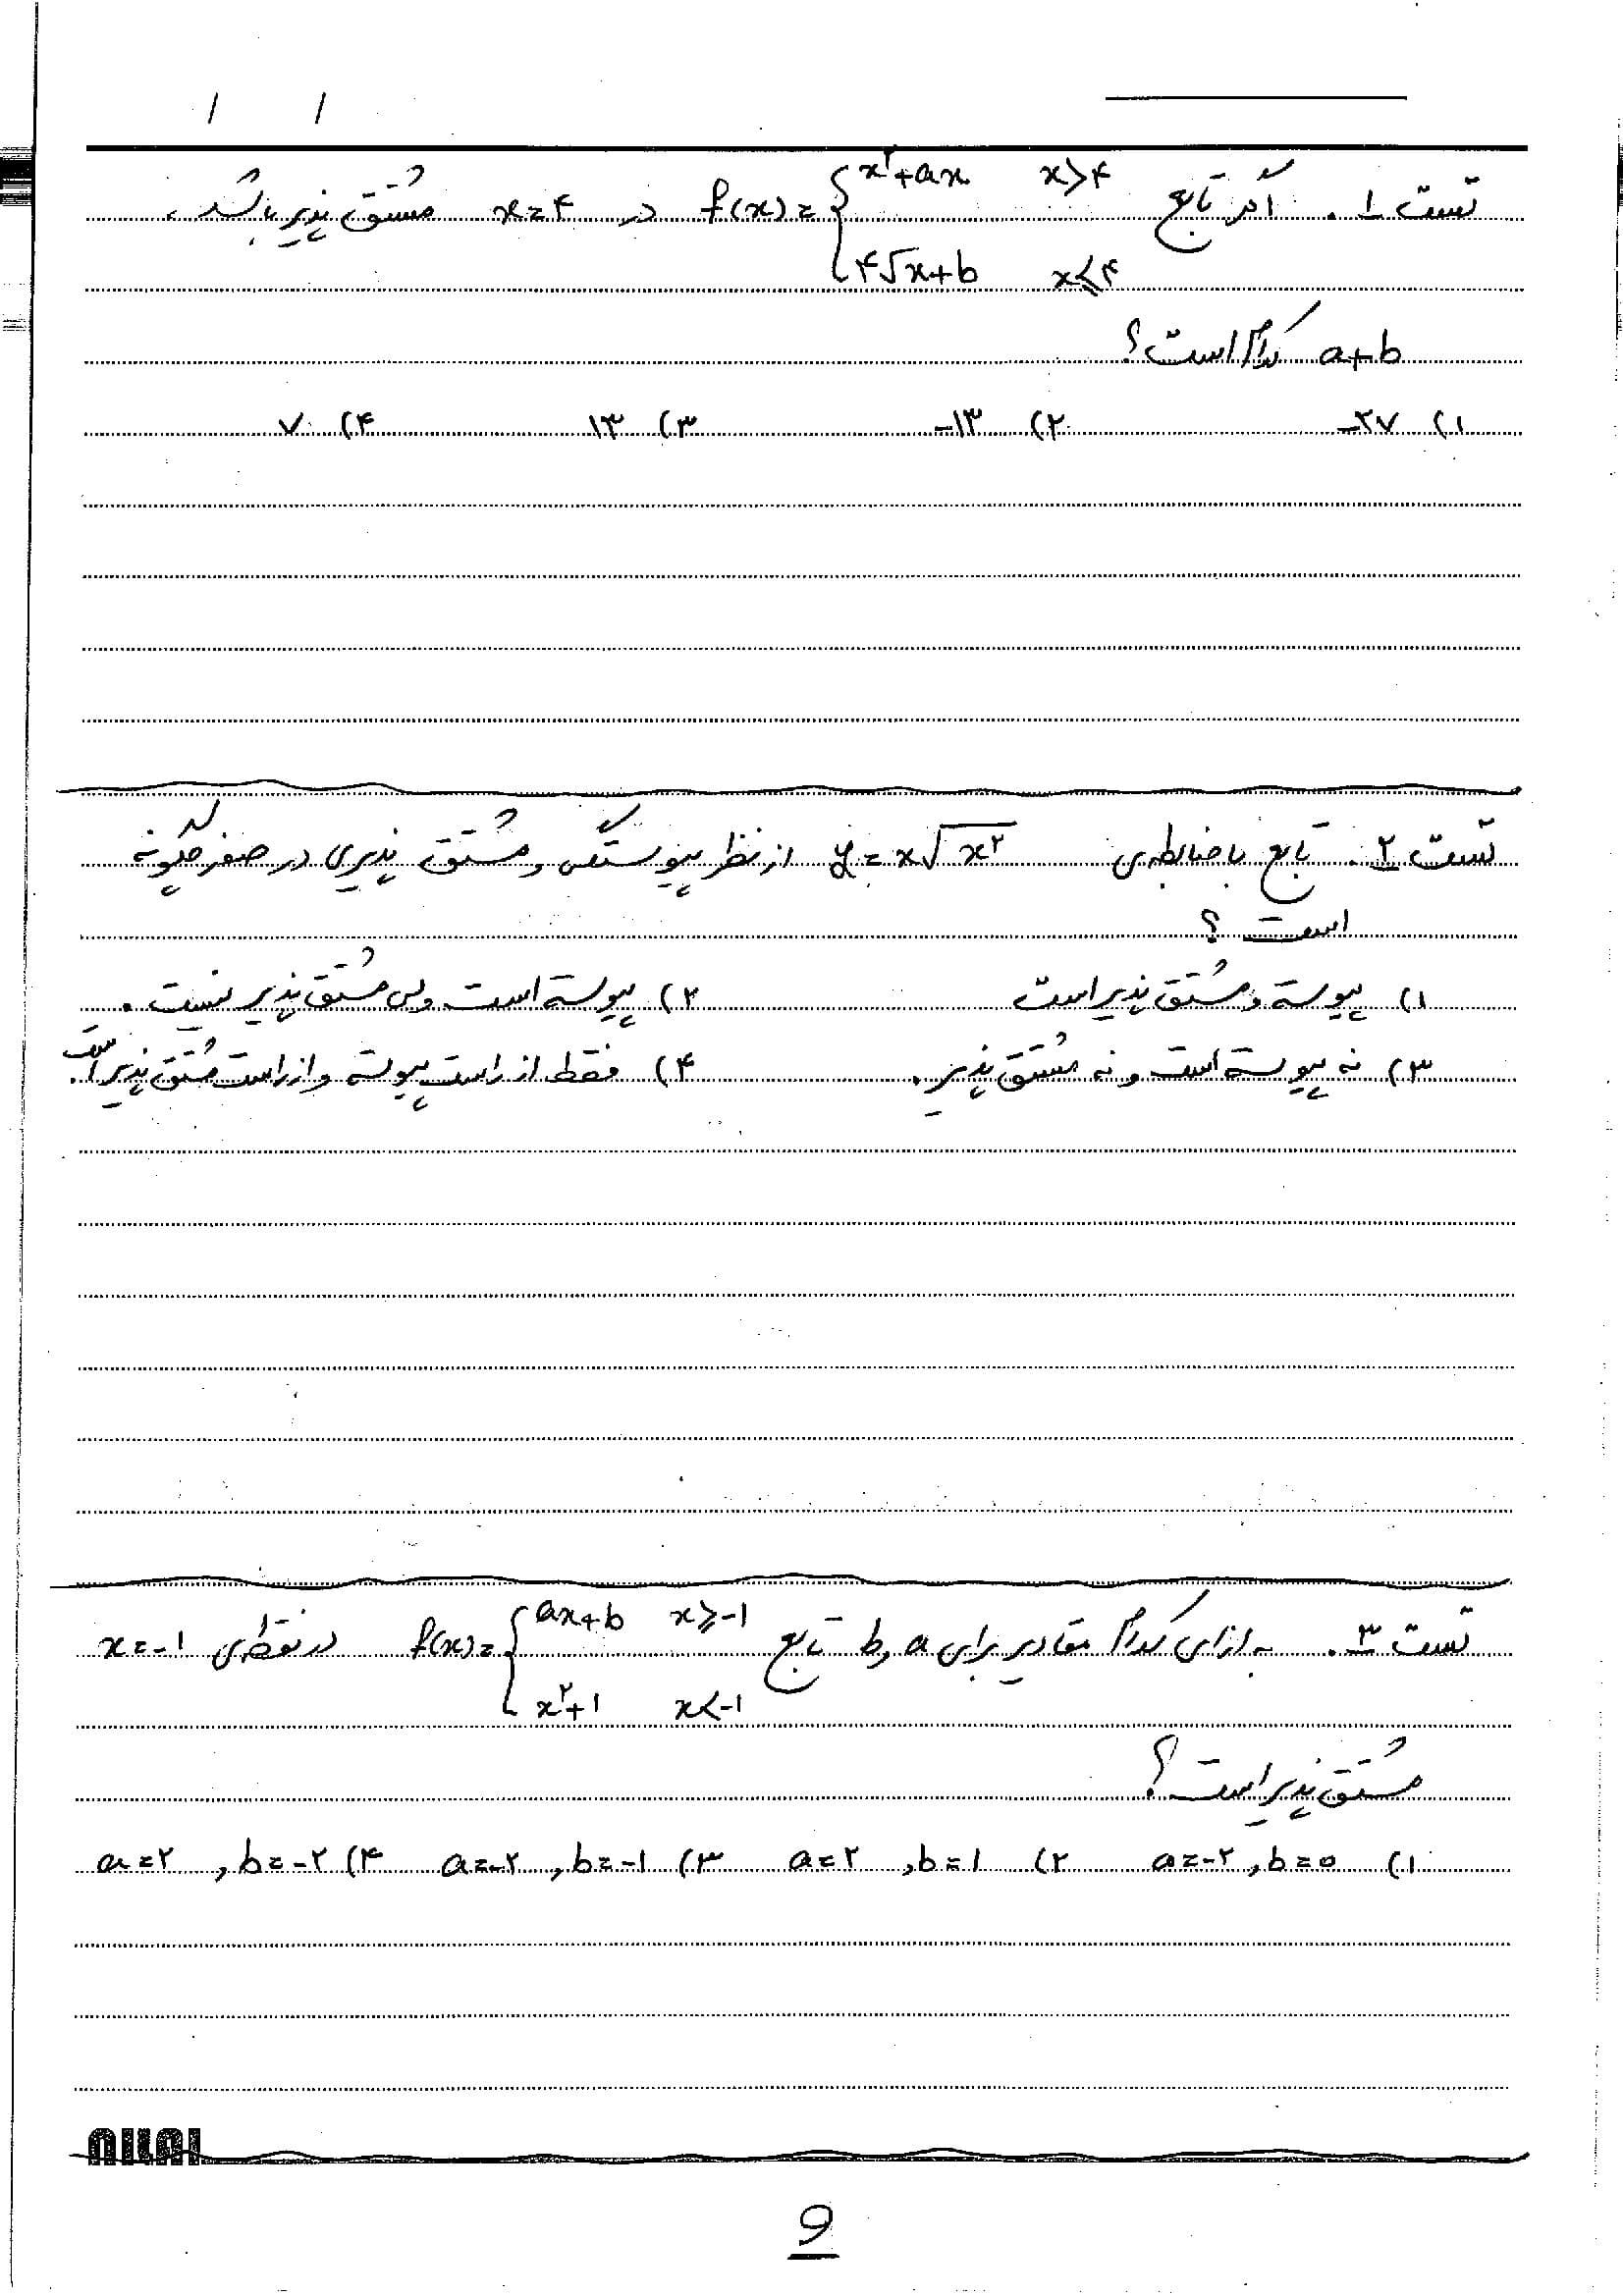 تست ۱. اگر تابع f(x)= { x²+ax x>۴ در x=۴ مشتق پذیر باشد،
۴√x+b x≤۴
a+b کدام است؟
۱) -۲۷ ۲) -۱۳ ۳) ۱۳ ۴) ۷
تست ۲. تابع با ضابطه‌ی y=x√x² از نظر پیوستگی و مشتق پذیری در صفر چگونه
است؟
۱) پیوسته و مشتق پذیر است ۲) پیوسته است ولی مشتق پذیر نیست.
۳) نه پیوسته است و نه مشتق پذیر. ۴) فقط از راست پیوسته و از راست مشتق پذیر است.
تست ۳. به ازای کدام مقادیر برای a و b تابع f(x)= { ax+b x≥-۱ در نقطه‌ی x=-۱
x²+۱ x<-۱
مشتق پذیر است؟
۱) a=-۲, b=۰ ۲) a=۲, b=۱ ۳) a=-۲, b=-۱ ۴) a=۲, b=-۲
NILAI
9